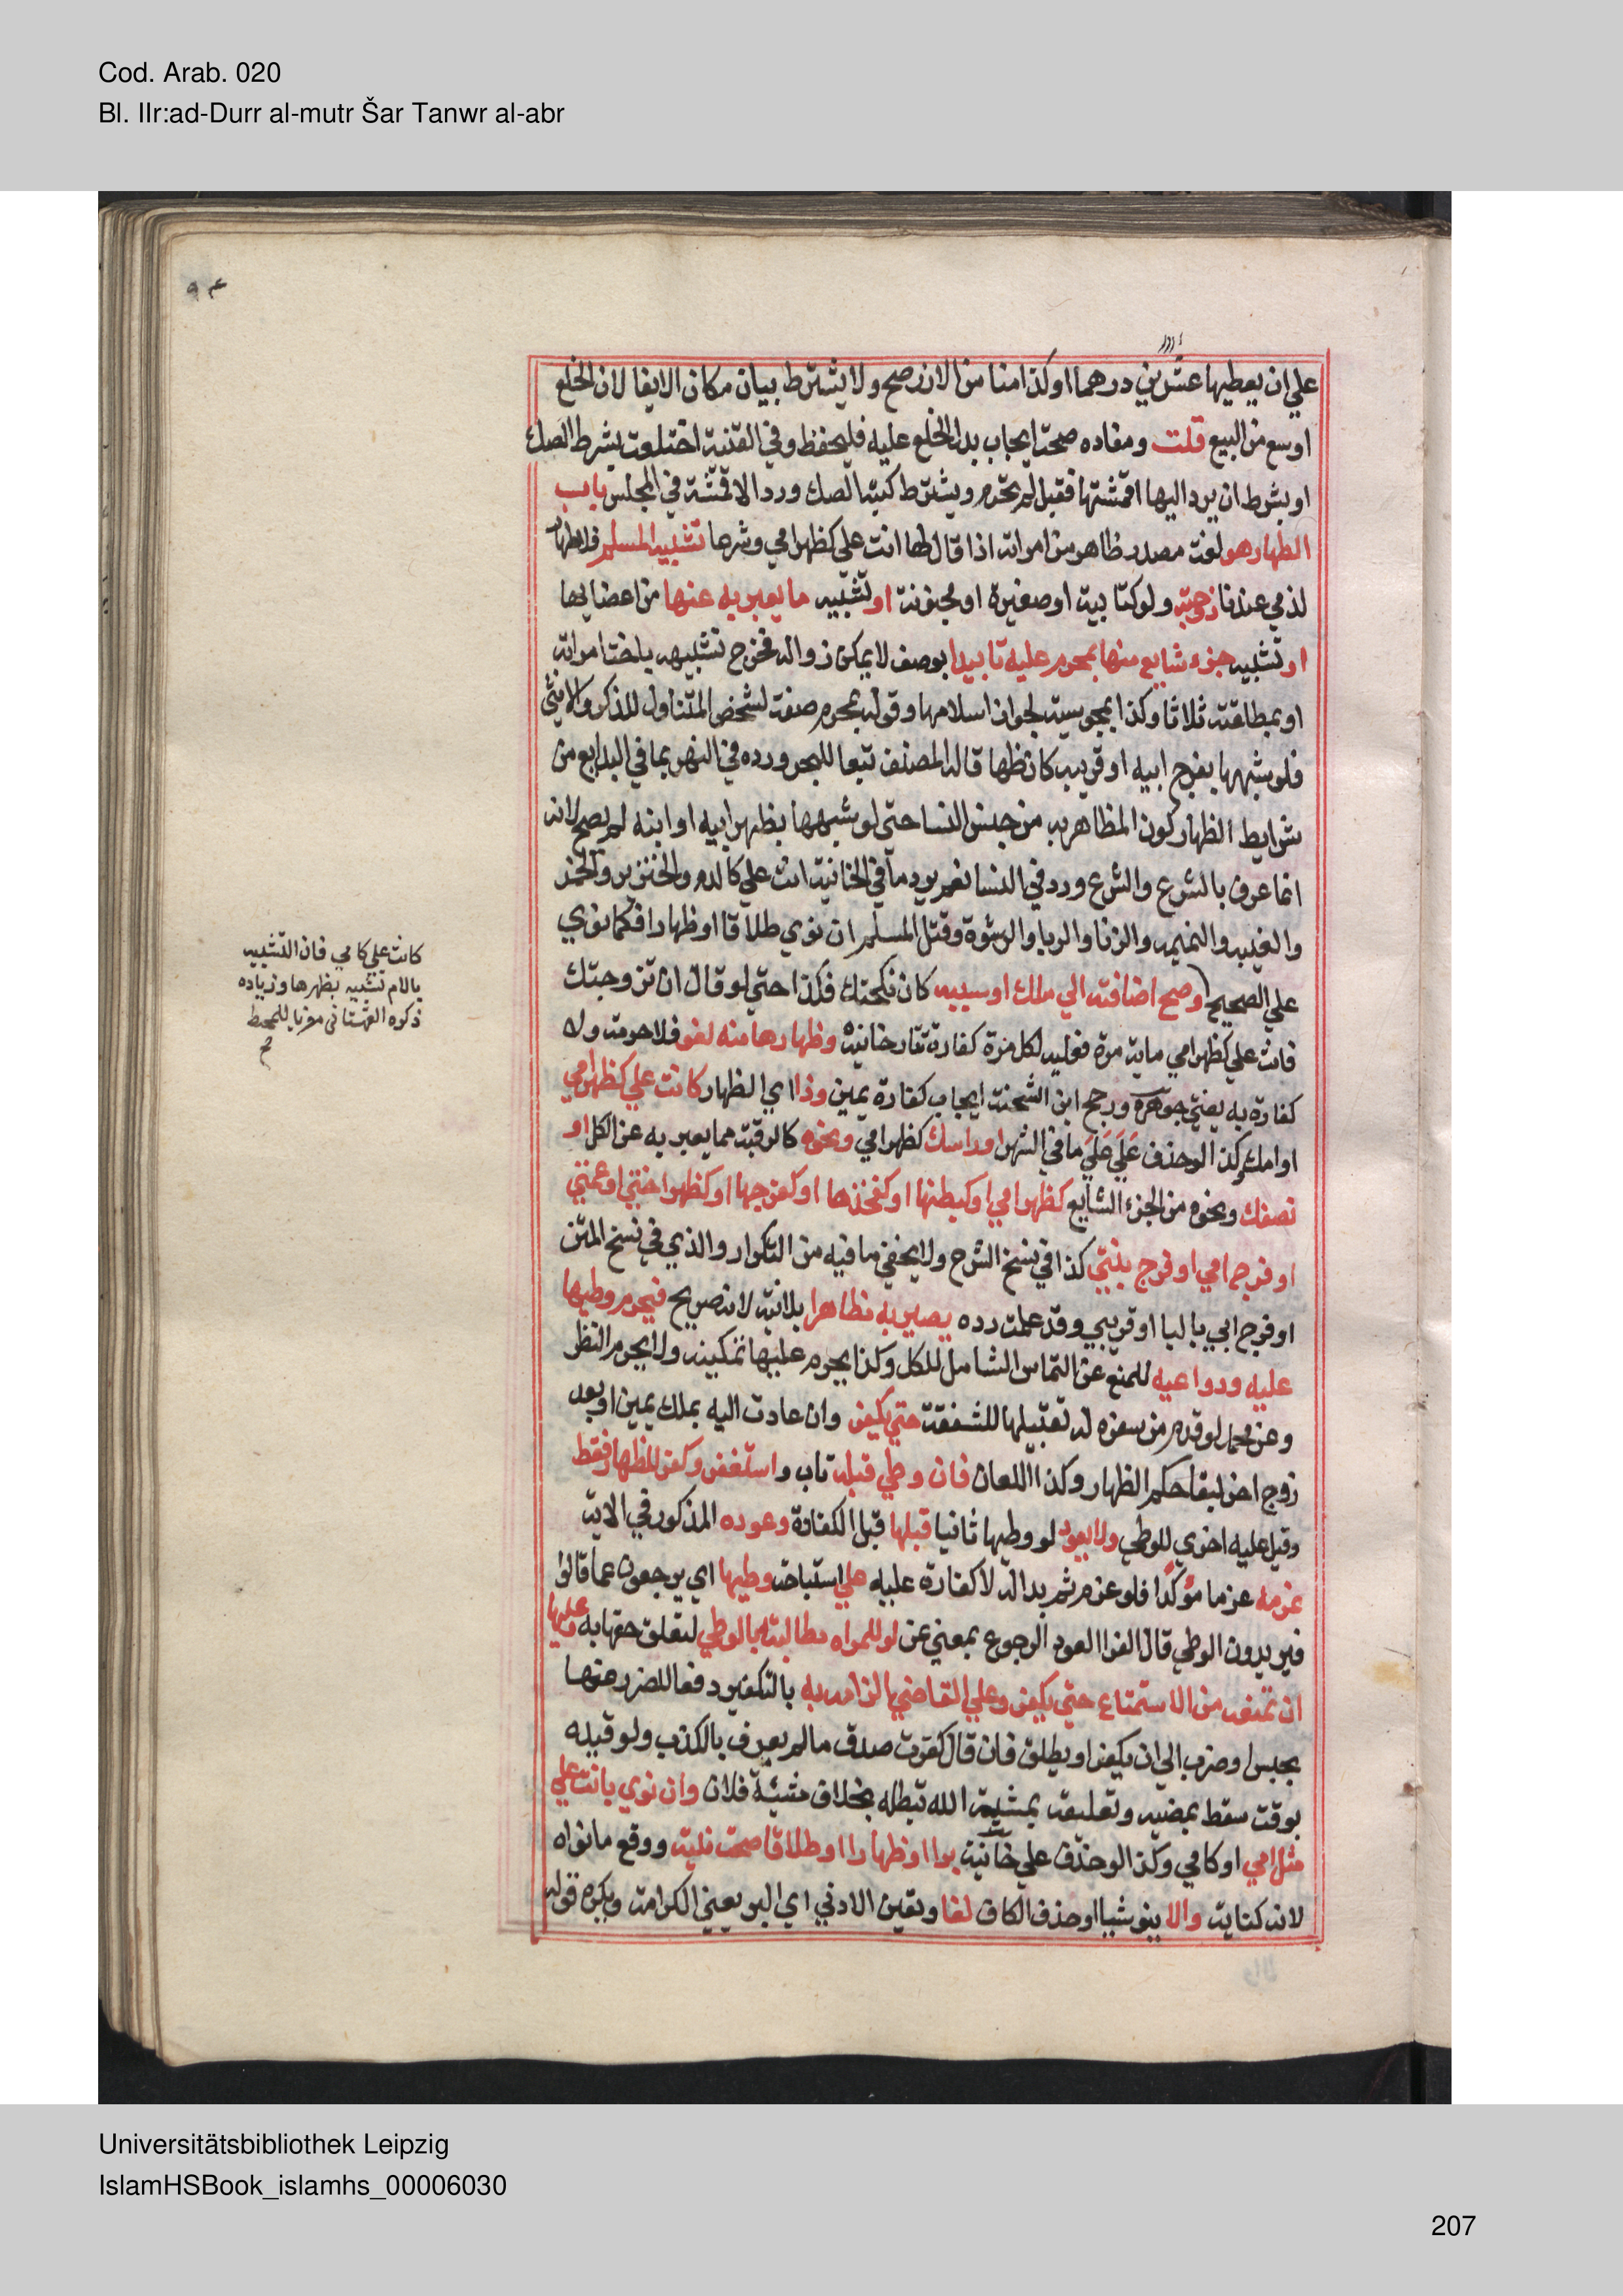 Cod. Arab. 020
Bl. IIr:ad-Durr al-mutr Šar Tanwr al-abr
علي ان يعطيها عشرين درهما او كذا منا من الارز صح ولا يشترط بيان مكان الايفا لان الخلع
اوسع من البيع قلت ومفاده صحة ايجاب بدل الخلع عليه فليحفظ وفي القنية اختلعت بشرط الصك
او بشرط ان يرد اليها اقمشتها فقبل لم يحرم ويشترط كتبة الصك ورد الاقمشة في المجلس باب
الظهار هو لغة مصدر ظاهر من امراته اذا قال لها انت علي كظهر امي وشرعا تشبيه المسلم فلا ظهار
لذمي عندنا زوجته ولو كتابية او صغيرة او مجنونة او تشبيه ما يعبر به عنها من اعضايها
او تشبيه جزء شايع منها بمحرم عليه تابيدا بوصف لا يمكن زواله فخرج تشبيهه باخت امراته
او بمطلقته ثلاثا وكذا بمجوسية لجواز اسلامها وقوله بمحرم صفة لشخص المتناول للذكر والانثي
فلو شبهها بفرج ابيه او قريبه كان مظاهرا قاله المصنف تبعا للبحر ورده في النهر بما في البدايع من
شرايط الظهار كون المظاهر به من جنس النسا حتي لو شبهها بظهر ابيه او ابنه لم يصح لانه
انما عرف بالشرع والشرع ورد في النسا نعم يرد ما في الخانية انت علي كالدم والخنزير والخمر
والغيبة والنميمة والزنا والربا والرشوة وقتل المسلم ان نوي طلاقا او ظهارا فكما نوي
علي الصحيح وصح اضافته الي ملك او سببه كان نكحتك فكذا حتي لو قال ان تزوجتك
فانت علي كظهر امي ماية مرة فعليه لكل مرة كفارة تتارخانية وظهارها منه لغو فلا حرمة ولا
كفارة به يفتي جوهرة ورجح ابن الشحنة ايجاب كفارة يمين وذا اي الظهار كانت علي كظهر امي
او امك وكذا لو حذف علي علي ما في النهر او راسك كظهر امي ونحوه كالرقبة مما يعبر به عن الكل او
نصفك ونحوه من الجزء الشايع كظهر امي او كبطنها او كفخذها او كفرجها او كظهر اختي او عمتي
او فرج امي او فرج بنتي كذا في نسخ الشرح ولا يخفي ما فيه من التكرار والذي في نسخ المتن
او فرج ابي باليا او قريبي وقد علمت رده يصير به مظاهرا بلا نية لانه صريح فيحرم وطيها
عليه ودواعيه للمنع عن التماس الشامل للكل وكذا يحرم عليها تمكينه ولا يحرم النظر
وعن محمد لو قدم من سفره له تقبيلها للشفقة حتي يكفر وان عادت اليه بملك يمين او بعد
زوج اخر لبقا حكم الظهار وكذا اللعان فان وطي قبله تاب واستغفر وكفر للظهار فقط
وقيل عليه اخري للوطي ولا يعود لو وطيها ثانيا قبلها قبل الكفارة وعوده المذكور في الاية
عزمه عزما مؤكدا فلو عزم ثم بدا له لا كفارة عليه علي استباحة وطيها اي يرجعون عما قالوا
فيريدون الوطي قال الفرا العود الرجوع بمعني عن لو للمراه مطالبته بالوطي لتعلق حقها به وعليها
ان تمنعه من الاستمتاع حتي يكفر وعلي القاضي الزامه به بالتكفير دفعا للضرر عنها
بحبس او ضرب الي ان يكفر او يطلق فان قال كفرت صدق ما لم يعرف بالكذب ولو قيده
بوقت سقط بمضيه وتعليقه بمشية الله تبطله بخلاف مشيئة فلان وان نوي بانت علي
مثل امي او كامي وكذا لو حذف علي خانية برا او ظهارا او طلاقا صحت نيته ووقع ما نواه
لانه كناية والا ينو شيا او حذف الكاف لغا وتعين الادني اي البر يعني الكرامة ويكره قوله
كانت علي كامي فان التشبيه
بالام تشبيه بظهرها وزياده
ذكره القهستاني معزيا للمحيط
Universitätsbibliothek Leipzig
IslamHSBook_islamhs_00006030
207